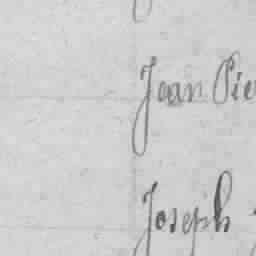 Jean Pie
Joseph